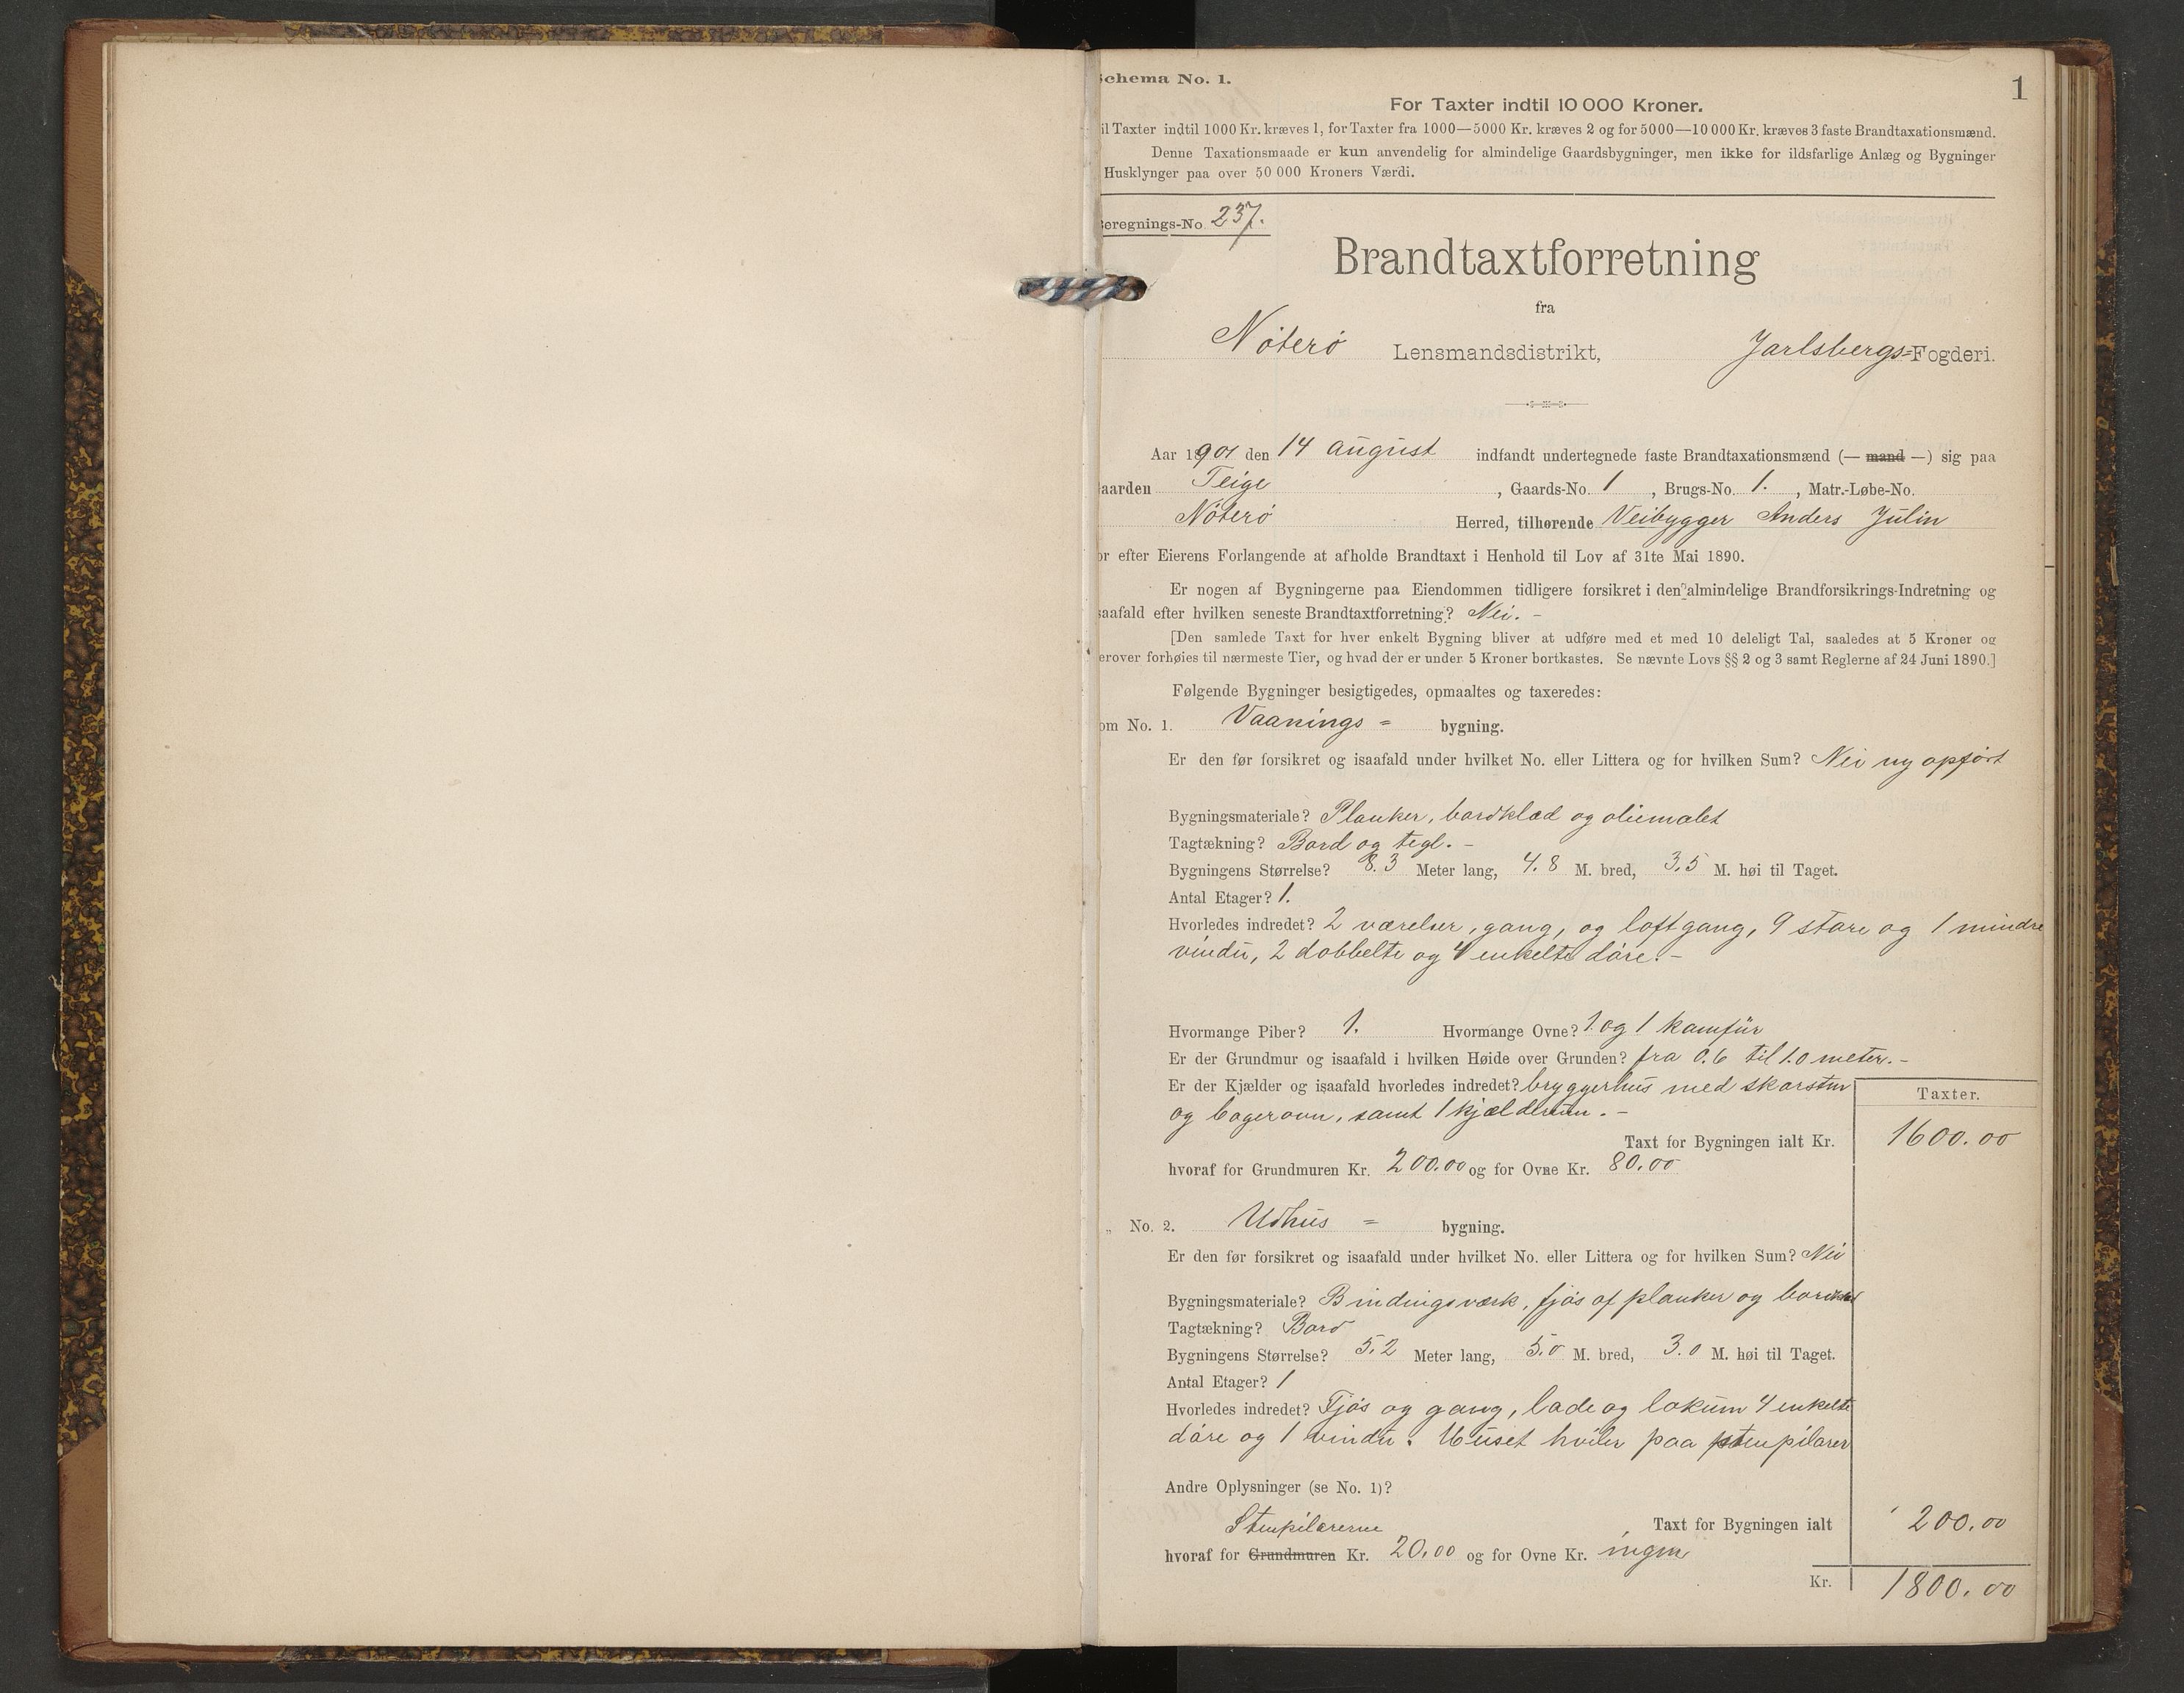 Schema No. 1.
1
For Taxter indtil 10 000 Kroner.
il Taxter indtil 1000 Kr. kræves 1, for Taxter fra 1000—5000 Kr. kræves 2 og for 5000—10 000 Kr. kræves 3 faste Brandtaxationsmænd.
Denne Taxationsmaade er kun anvendelig for almindelige Gaardsbygninger, men ikke for ildsfarlige Anlæg og Bygninger
Husklynger paa over 50 000 Kroners Værdi.
eregnings-No. 237.
Brandtaxtforretning
fra
Nöterö Lensmandsdistrikt, Jarlsbergs-Fogderi.
Aar 1901 den 14 august indfandt undertegnede faste Brandtaxationsmænd (— mand —) sig paa
aarden Teige, Gaards-No. 1, Brugs-No. 1., Matr.-Løbe-No.
Nöterö Herred, tilhørende Veibygger Anders Julin
or efter Eierens Forlangende at afholde Brandtaxt i Henhold til Lov af 31te Mai 1890.
Er nogen af Bygningerne paa Eiendommen tidligere forsikret i den almindelige Brandforsikrings-Indretning og
saafald efter hvilken seneste Brandtaxtforretning? Nei. -
[Den samlede Taxt for hver enkelt Bygning bliver at udføre med et med 10 deleligt Tal, saaledes at 5 Kroner og
erover forhøies til nærmeste Tier, og hvad der er under 5 Kroner bortkastes. Se nævnte Lovs §§ 2 og 3 samt Reglerne af 24 Juni 1890.]
Følgende Bygninger besigtigedes, opmaaltes og taxeredes:
om No. 1. Vaanings = bygning.
Er den før forsikret og isaafald under hvilket No. eller Littera og for hvilken Sum? Nei ny opfört
Bygningsmateriale? Planker, bordklæd og oliemalet
Tagtækning? Bord og tegl. -
Bygningens Størrelse? 8.3 Meter lang, 4.8 M. bred, 3.5 M. høi til Taget.
Antal Etager? 1.
Hvorledes indredet? 2 værelser, gang, og loftgang, 9 store og 1 mindre
vindu, 2 dobbelte og 4 enkelte döre. -
Hvormange Piber? 1. Hvormange Ovne? 1 og 1 komfür
Er der Grundmur og isaafald i hvilken Høide over Grunden? fra 0.6 til 1.0 meter. -
Er der Kjælder og isaafald hvorledes indredet? bryggerhus med skorsten
Taxter.
og bagerovn, samt 1 kjælderrum. -
Taxt for Bygningen ialt Kr. 1600.00
hvoraf for Grundmuren Kr. 200.00 og for Ovne Kr. 80.00
„ No. 2. Udhus = bygning.
Er den før forsikret og isaafald under hvilket No. eller Littera og for hvilken Sum? Nei
Bygningsmateriale? Bindingsværk, fjös af planker og
Tagtækning? Bord
Bygningens Størrelse? 5.2 Meter lang, 5.0 M. bred, 3.0 M. høi til Taget.
Antal Etager? 1
Hvorledes indredet? Fjös og gang, lade og lokum 4 enkelte
döre og 1 vindu. Huset hviler paa stenpilarer
Andre Oplysninger (se No. 1)?
Stenpilarerne Taxt for Bygningen ialt 200.00
hvoraf for Grundmuren Kr. 20.00 og for Ovne Kr. ingen
Kr. 1800.00